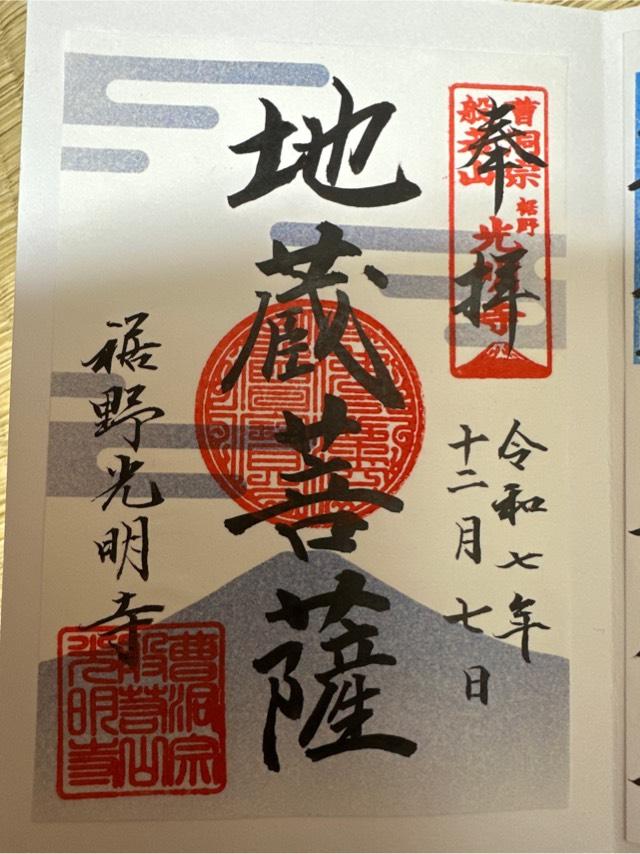 奉拝
曹洞宗
般若山
裾野
光明寺
令和七年
十二月七日
地蔵菩薩
裾野光明寺
曹洞宗
般若山
光明寺